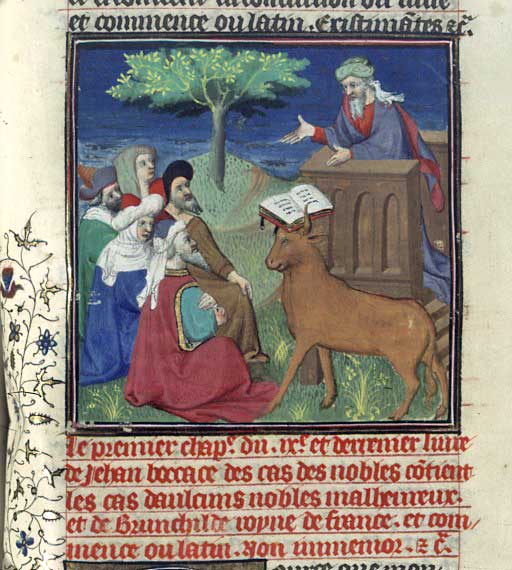 et commence ou latin. Existimātes ⁊c̄.
Le premier chap̄e. du .ix.e et derrenier liure
de Jehan boccace des cas des nobles cōtient
les cas daulcuns nobles malheureux.
et de Brunchilde royne de france. et com/
mence ou latin. Non immemor. ⁊ c̄.